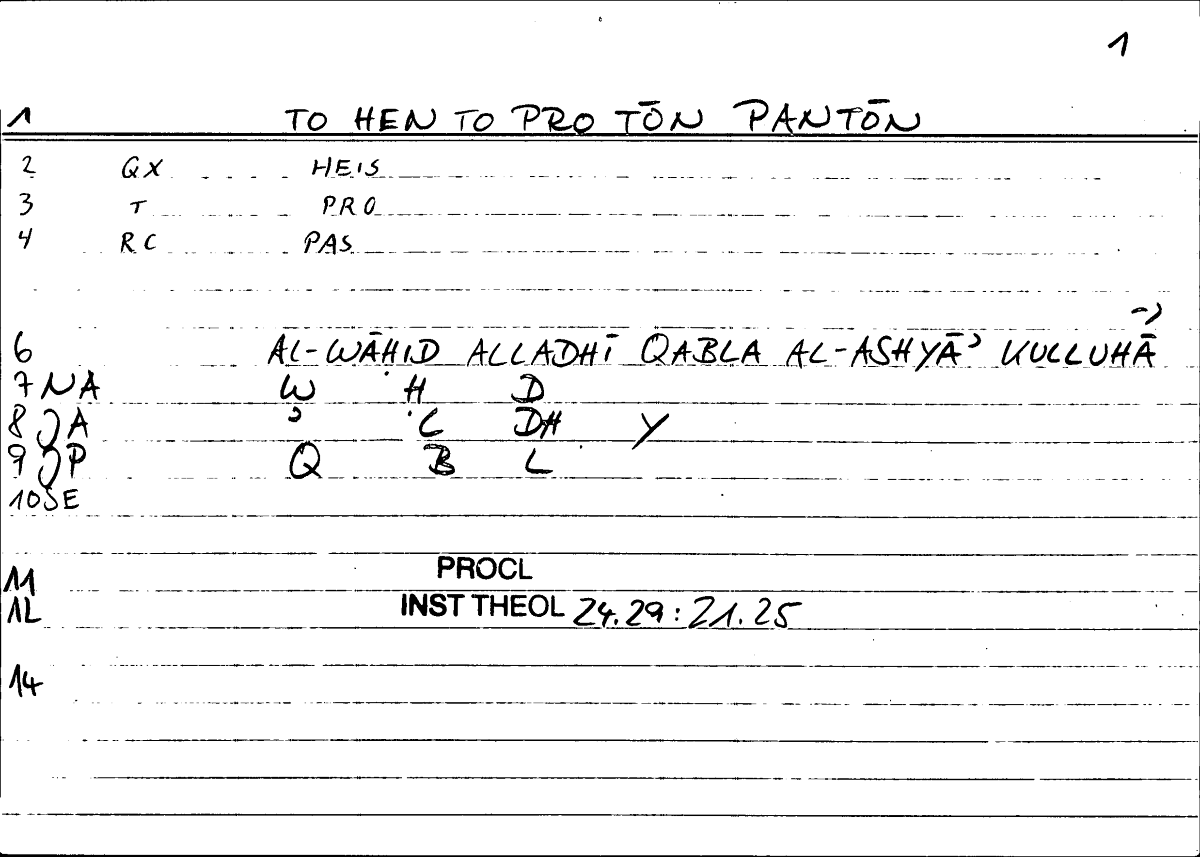 1
1 TO HEN TO PRO TŌN PANTŌN
2 QX HEIS
3 T PRO
4 RC PAS
->
6 AL-WĀḤID ALLADHĪ QABLA AL-ASHYĀʾ KULLUHĀ
7 NA W Ḥ D
8 JA ʾ L DH Y
9 JP Q B L
10 SE
11 PROCL
12 INST THEOL 24.29:21.25
14